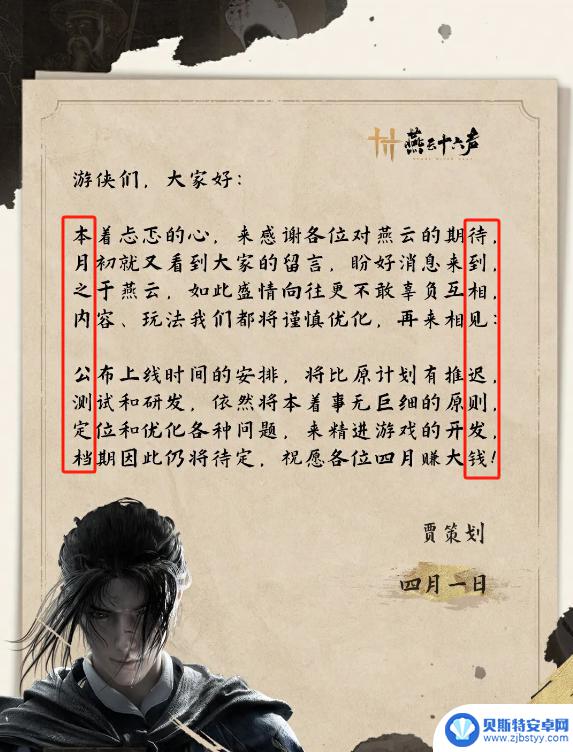 燕云十六声
游侠们，大家好：
本着忐忑的心，来感谢各位对燕云的期待，
月初就又看到大家的留言，盼好消息来到，
之于燕云，如此盛情向往更不敢辜负互相，
内容、玩法我们都将谨慎优化，再来相见：
公布上线时间的安排，将比原计划有推迟，
测试和研发，依然将本着事无巨细的原则，
定位和优化各种问题，来精进游戏的开发，
档期因此仍将待定，祝愿各位四月赚大钱！
贾策划
四月一日
贝斯特安卓网
www.zjbstyy.com